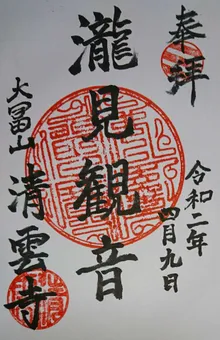 奉拝
令和二年
四月九日
瀧見観音
大冨山
清雲寺